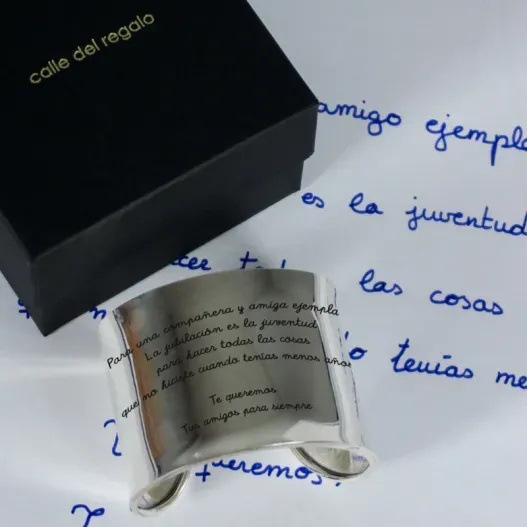 calle del regalo
amigo ejempla
es la juventud
las cosas
tenías me
Para una compañera y amiga ejempla
La jubilación es la juventud
para hacer todas las cosas
que no hiciste cuando tenías menos años
Te queremos
Tus amigos para siempre
queremos.